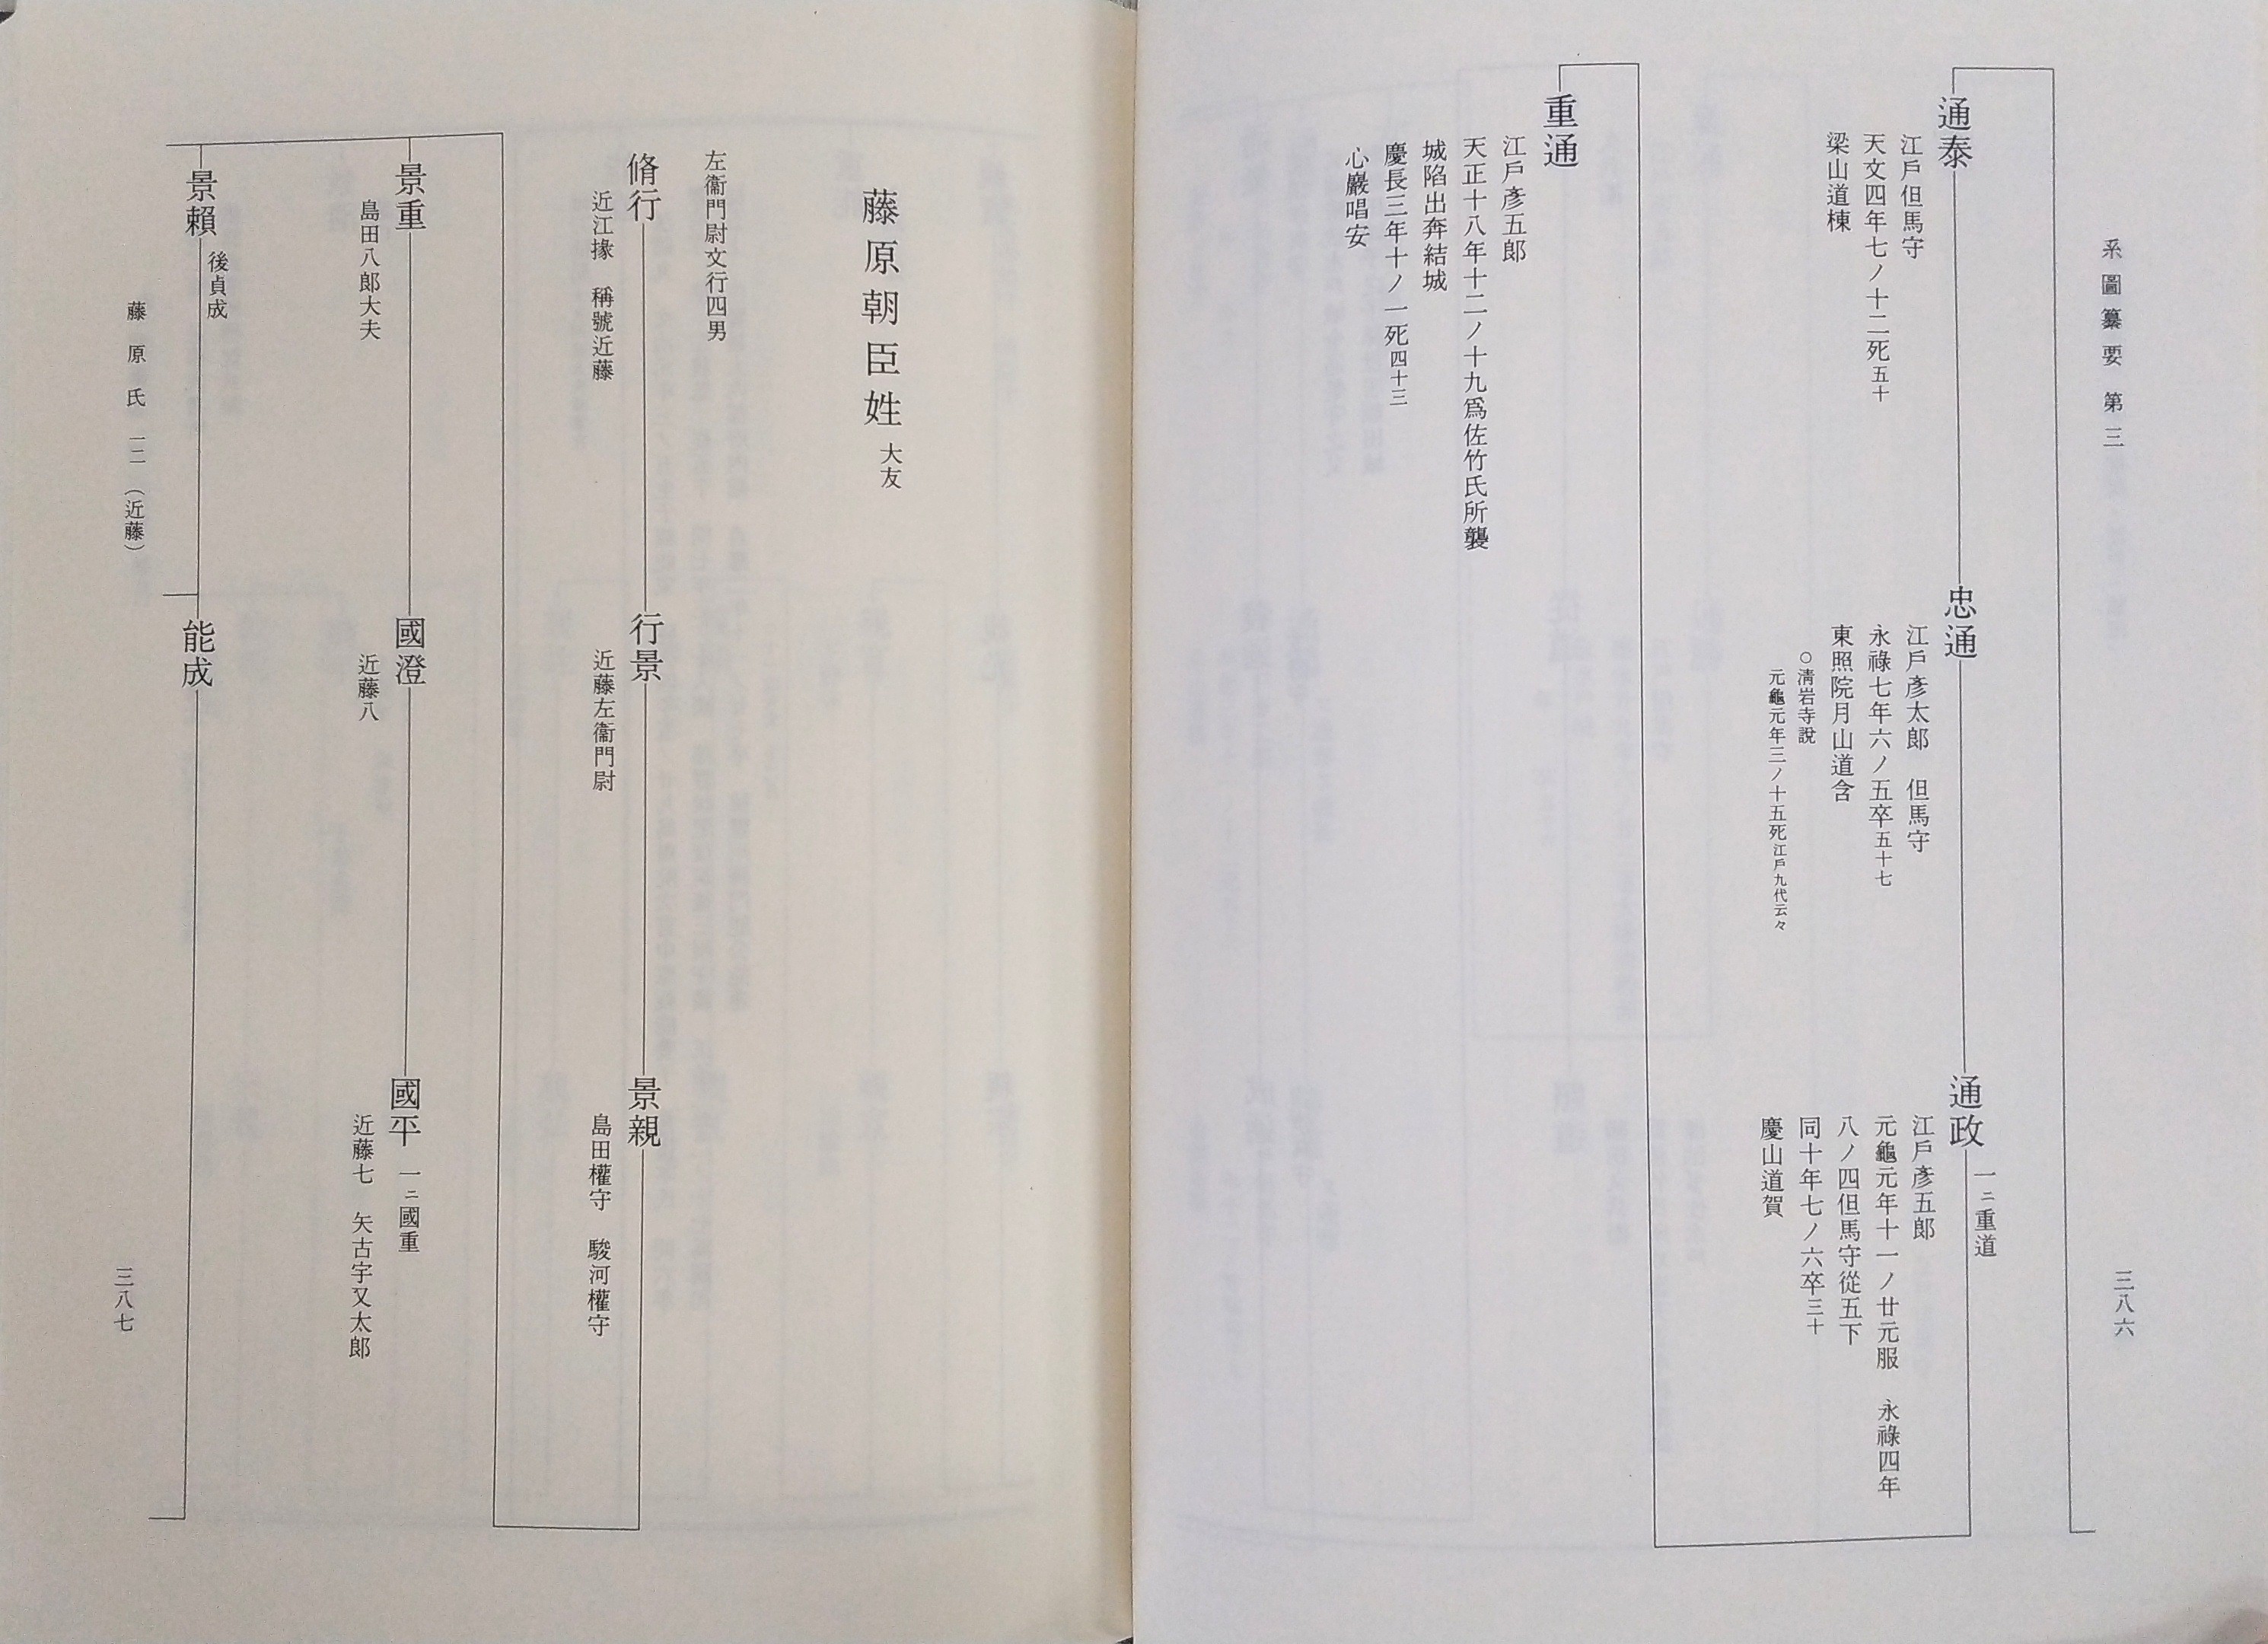 系圖纂要 第三
三八六
通泰
江戶但馬守
天文四年七ノ十二死五十
梁山道棟
忠通
江戶彥太郎 但馬守
永祿七年六ノ五卒五十七
東照院月山道含
○淸岩寺說
元龜元年三ノ十五死江戶九代云々
通政
一ニ重道
江戶彥五郎
元龜元年十一ノ廿元服 永祿四年
八ノ四但馬守從五下
同十年七ノ六卒三十
慶山道賀
重通
江戶彥五郎
天正十八年十二ノ十九爲佐竹氏所襲
城陷出奔結城
慶長三年十ノ一死四十三
心巖唱安
藤原朝臣姓 大友
左衞門尉文行四男
脩行
近江掾 稱號近藤
行景
近藤左衞門尉
景親
島田權守 駿河權守
景重
島田八郎大夫
國澄
近藤八
國平 一ニ國重
近藤七 矢古宇又太郎
景賴
後貞成
能成
藤原氏 一二（近藤）
三八七